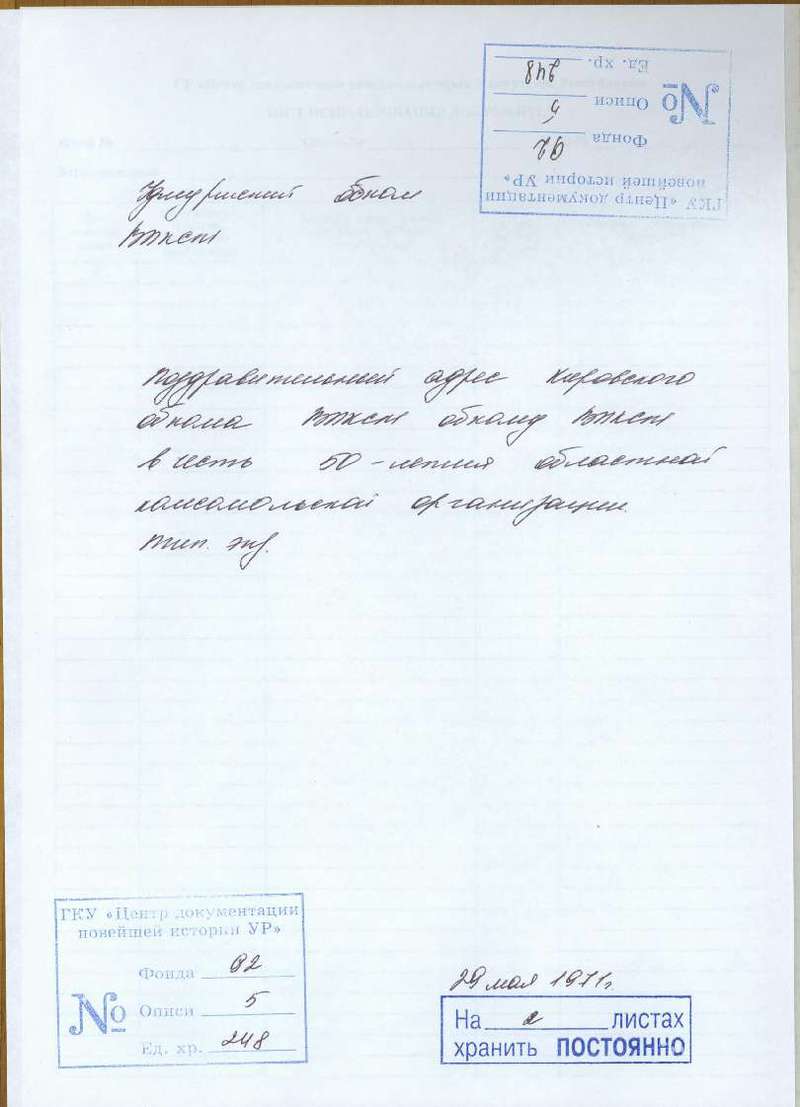 ГКУ «Центр документации
новейшей истории УР»
Фонда 92
№ Описи 5
Ед. хр. 248
Удмуртский обком
ВЛКСМ
Поздравительный адрес Кировского
обкома ВЛКСМ обкому ВЛКСМ
в честь 50-летия областной
комсомольской организации.
тип. экз.
ГКУ «Центр документации
новейшей истории УР»
Фонда 92
№ Описи 5
Ед. хр. 248
29 мая 1971г.
На 2 листах
хранить ПОСТОЯННО